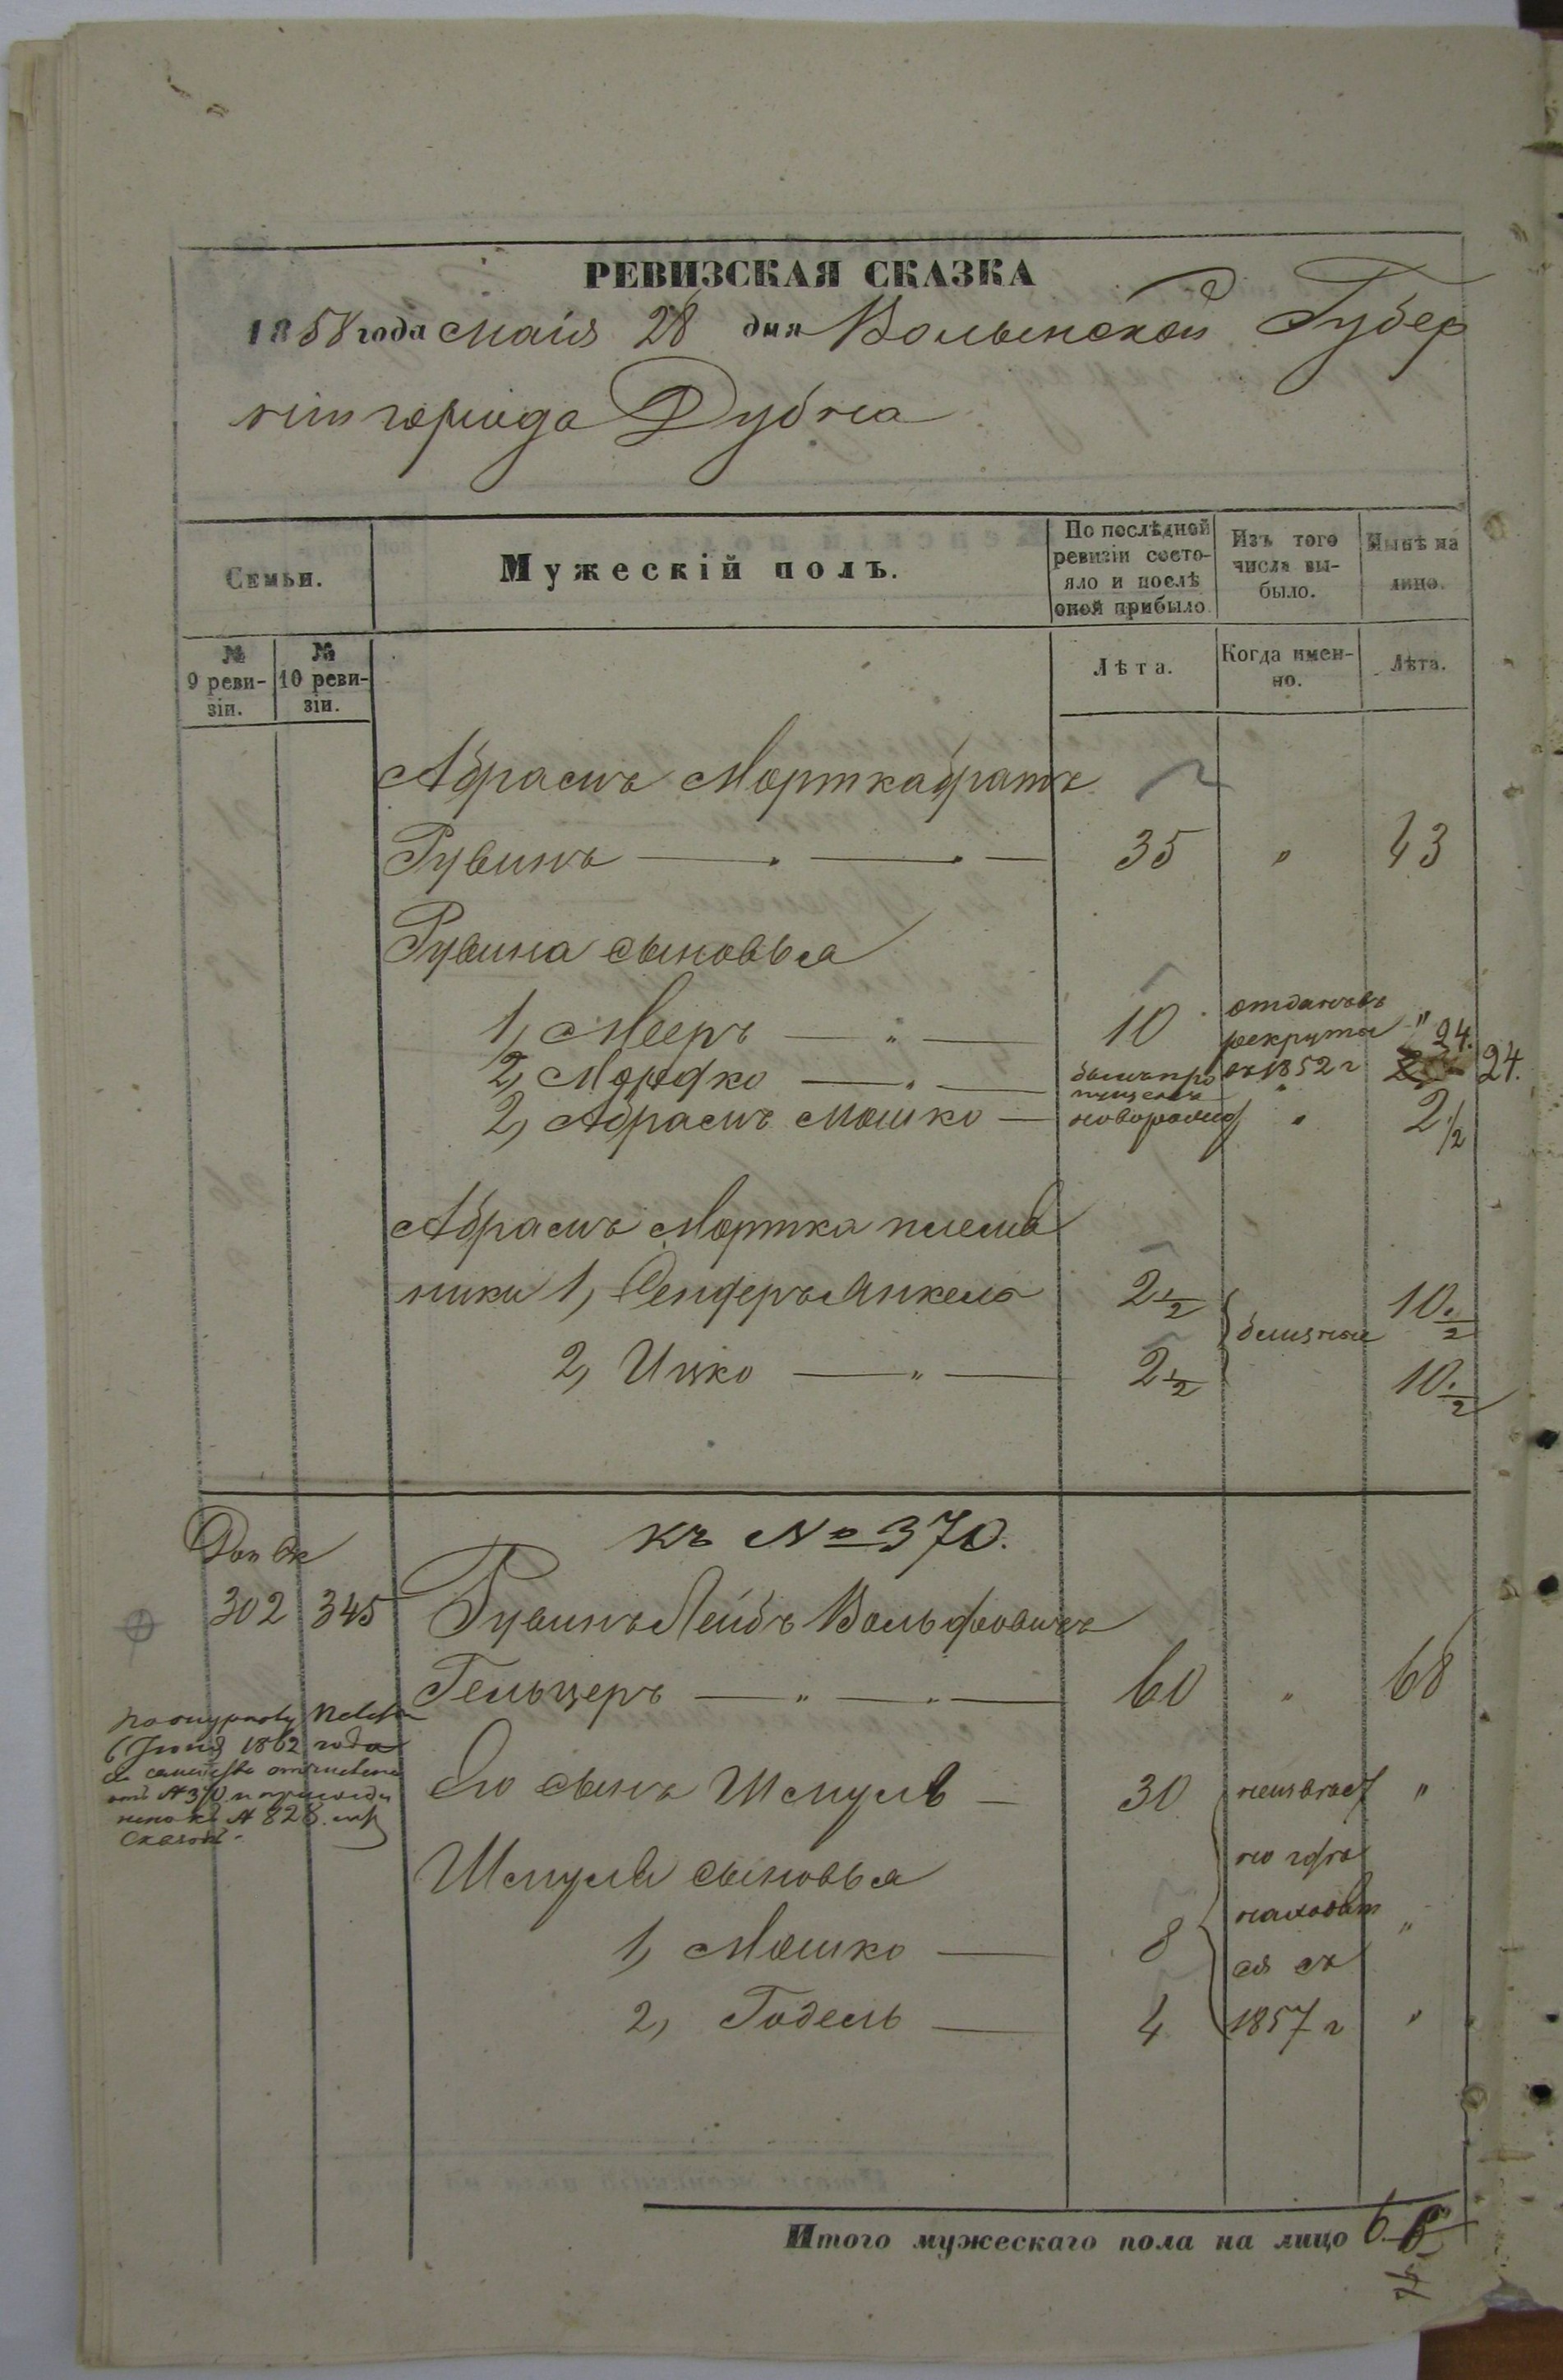 РЕВИЗСКАЯ СКАЗКА
1858 года Маія 28 дня Волынской Губер
ніи города Дубна
Семьи.
Мужескій полъ.
По послѣдней ревизіи состо-
яло и послѣ
оной прибыло.
Изъ того
числа вы-
было.
Нынѣ на
лицо.
№ 9 реви-
зіи.
№ 10 реви-
зіи.
Лѣта.
Когда имен-
но.
Лѣта.
Абрамъ Мортка братъ
Рувинъ 35 " 43
Рувина сыновья
1, Мееръ 10 отданъ въ рекруты въ 1852 г "
2, Мордко былъ пропущенъ " 24. 24.
2, Абрамъ Мошко новорожд " 2 1/2
Абрамъ Мортка племя
ники 1, Сендеръ Янкель 2 1/2 10 1/2
близны
2, Ицко 2 1/2 10 1/2
къ № 370.
302 345 Рувинъ Лейбъ Вольфовичъ
Гельцеръ 60 " 68
6 Іюня 1862 года
отъ № 370 и
къ № 828.
сказки.
Его сынъ Шмуль 30 неизвест "
но где
Шмуля сыновья
находит
1, Мошко 8 "
ся съ
2, Годель 4 1857 г "
Итого мужескаго пола на лицо 6